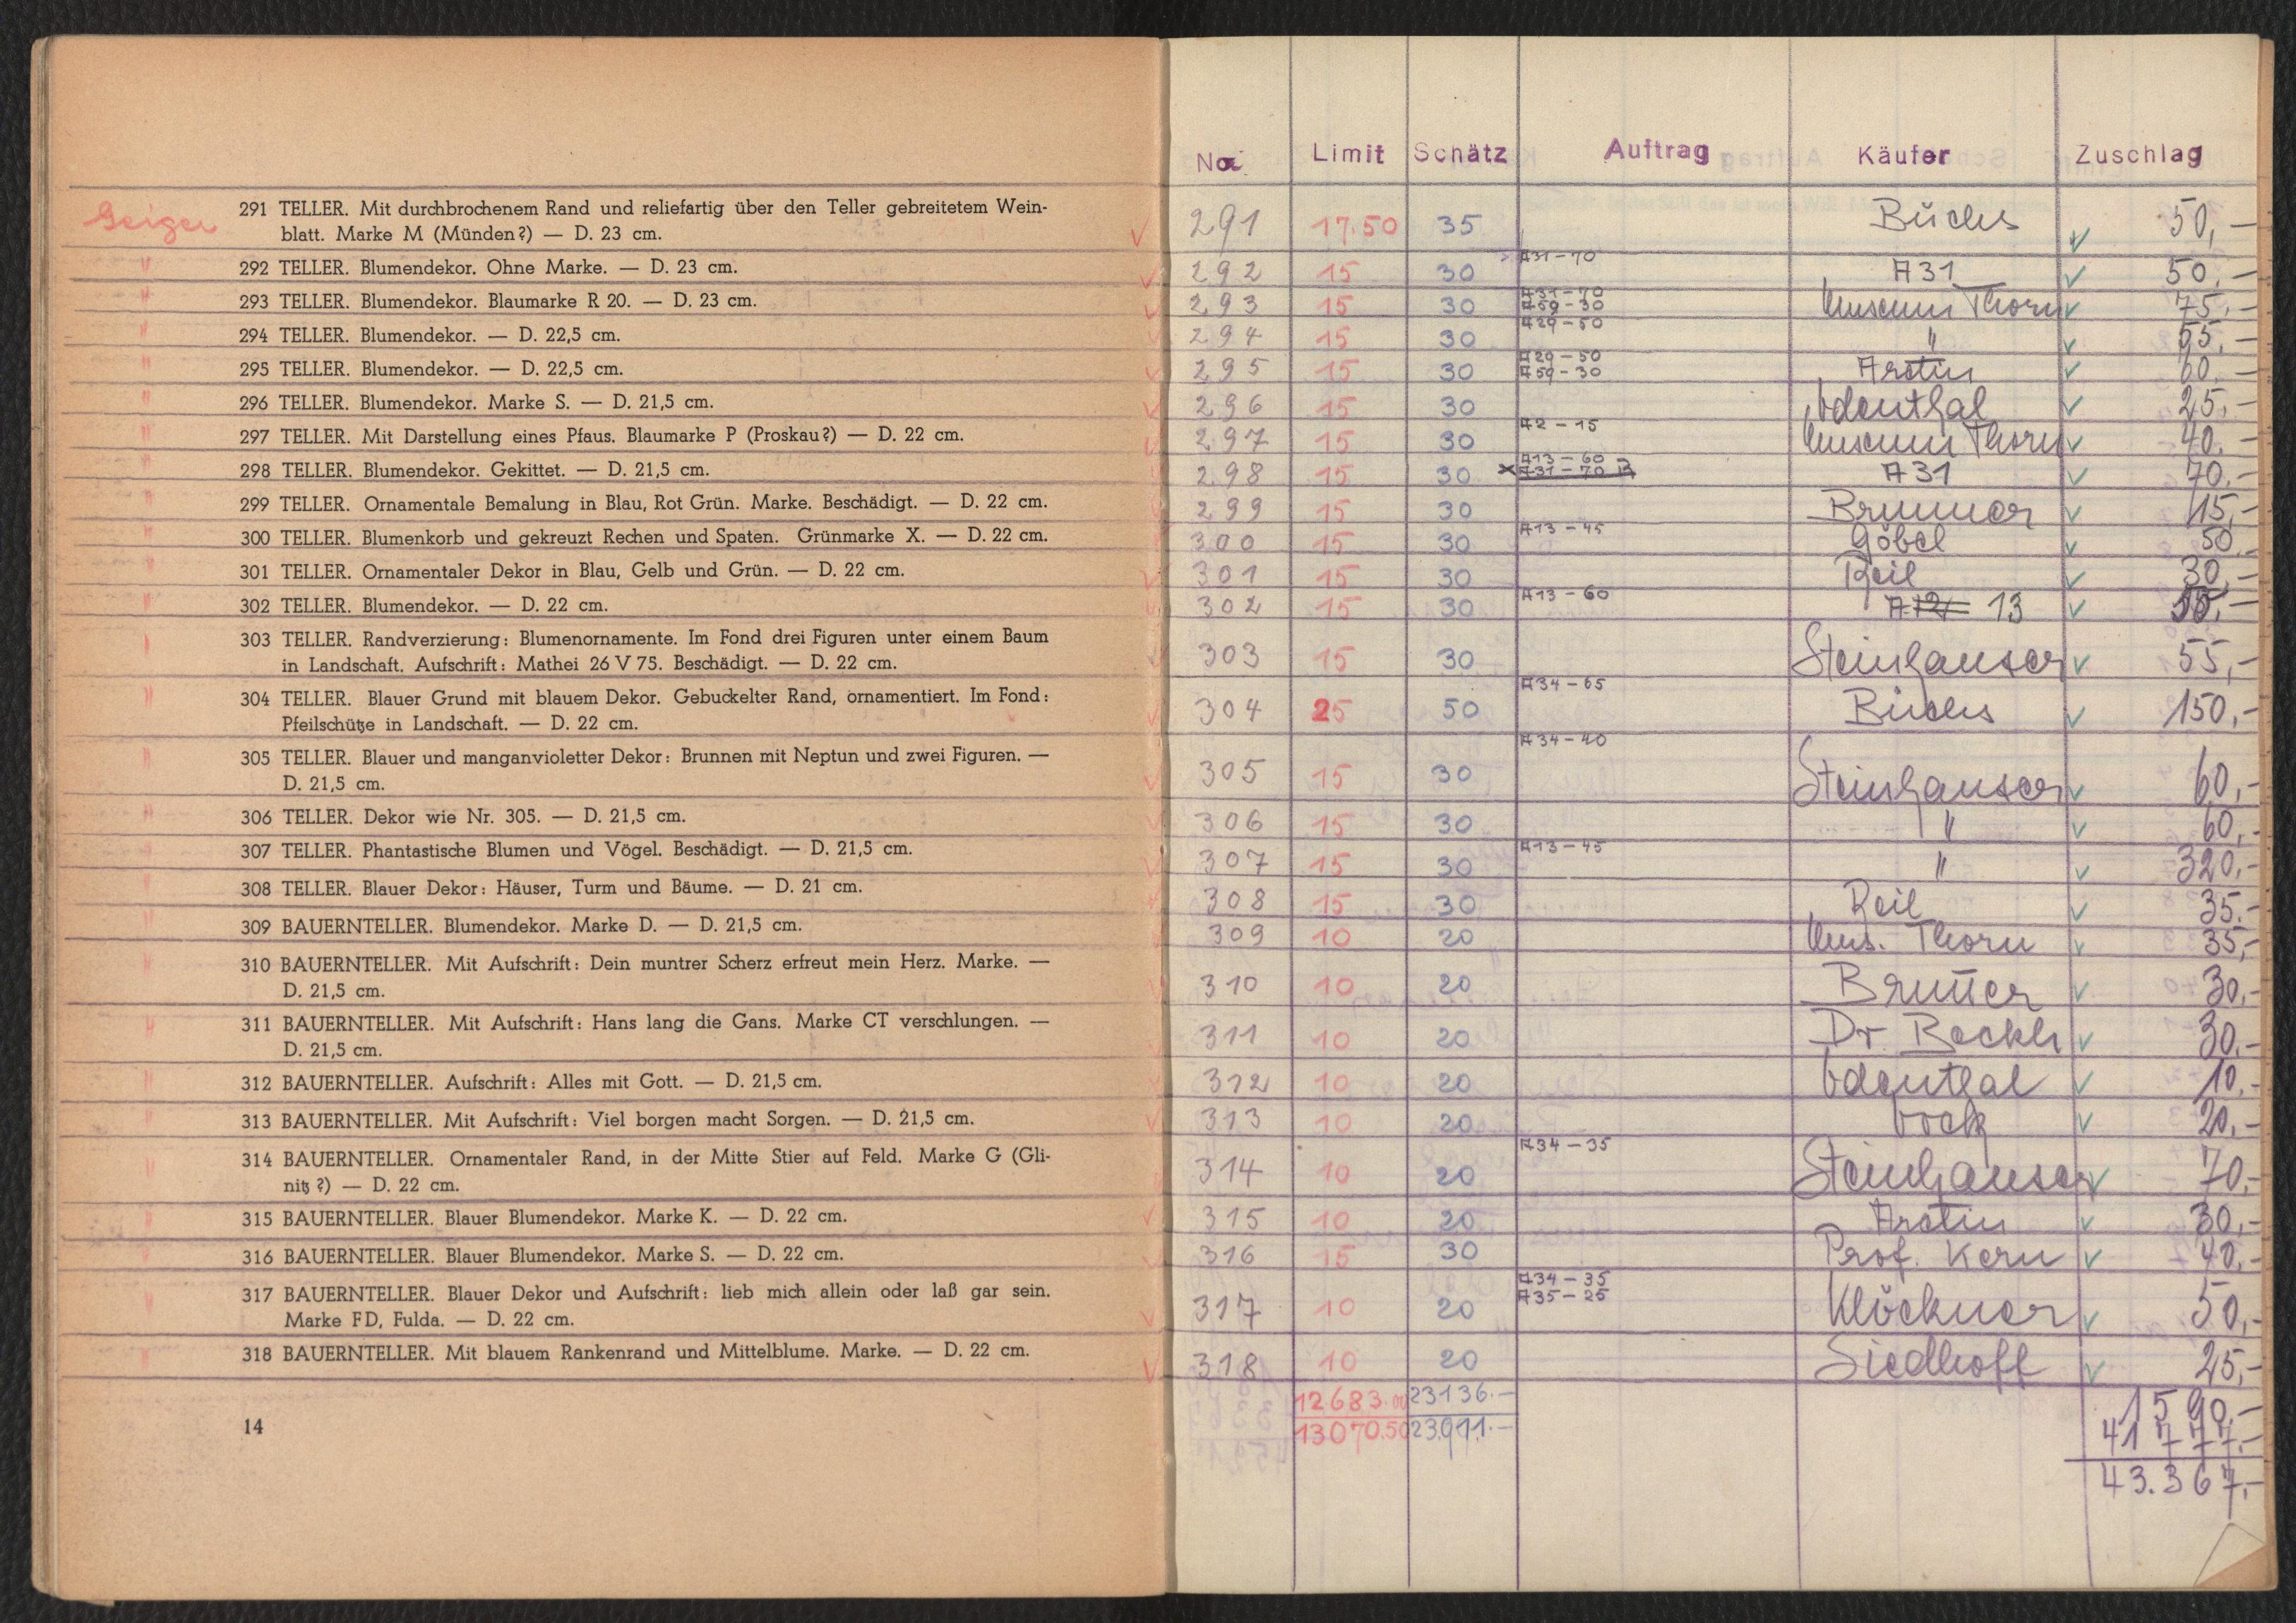 Geiger
291 TELLER. Mit durchbrochenem Rand und reliefartig über den Teller gebreitetem Wein-
blatt. Marke M (Münden?) — D. 23 cm.
" 292 TELLER. Blumendekor. Ohne Marke. — D. 23 cm.
" 293 TELLER. Blumendekor. Blaumarke R 20. — D. 23 cm.
" 294 TELLER. Blumendekor. — D. 22,5 cm.
" 295 TELLER. Blumendekor. — D. 22,5 cm.
" 296 TELLER. Blumendekor. Marke S. — D. 21,5 cm.
" 297 TELLER. Mit Darstellung eines Pfaus. Blaumarke P (Proskau?) — D. 22 cm.
" 298 TELLER. Blumendekor. Gekittet. — D. 21,5 cm.
" 299 TELLER. Ornamentale Bemalung in Blau, Rot Grün. Marke. Beschädigt. — D. 22 cm.
" 300 TELLER. Blumenkorb und gekreuzt Rechen und Spaten. Grünmarke X. — D. 22 cm.
" 301 TELLER. Ornamentaler Dekor in Blau, Gelb und Grün. — D. 22 cm.
" 302 TELLER. Blumendekor. — D. 22 cm.
" 303 TELLER. Randverzierung: Blumenornamente. Im Fond drei Figuren unter einem Baum
in Landschaft. Aufschrift: Mathei 26 V 75. Beschädigt. — D. 22 cm.
" 304 TELLER. Blauer Grund mit blauem Dekor. Gebuckelter Rand, ornamentiert. Im Fond:
Pfeilschütze in Landschaft. — D. 22 cm.
" 305 TELLER. Blauer und manganvioletter Dekor: Brunnen mit Neptun und zwei Figuren. —
D. 21,5 cm.
" 306 TELLER. Dekor wie Nr. 305. — D. 21,5 cm.
" 307 TELLER. Phantastische Blumen und Vögel. Beschädigt. — D. 21,5 cm.
" 308 TELLER. Blauer Dekor: Häuser, Turm und Bäume. — D. 21 cm.
" 309 BAUERNTELLER. Blumendekor. Marke D. — D. 21,5 cm.
" 310 BAUERNTELLER. Mit Aufschrift: Dein muntrer Scherz erfreut mein Herz. Marke. —
D. 21,5 cm.
" 311 BAUERNTELLER. Mit Aufschrift: Hans lang die Gans. Marke CT verschlungen. —
D. 21,5 cm.
" 312 BAUERNTELLER. Aufschrift: Alles mit Gott. — D. 21,5 cm.
" 313 BAUERNTELLER. Mit Aufschrift: Viel borgen macht Sorgen. — D. 21,5 cm.
" 314 BAUERNTELLER. Ornamentaler Rand, in der Mitte Stier auf Feld. Marke G (Gli-
nitz ?) — D. 22 cm.
" 315 BAUERNTELLER. Blauer Blumendekor. Marke K. — D. 22 cm.
" 316 BAUERNTELLER. Blauer Blumendekor. Marke S. — D. 22 cm.
" 317 BAUERNTELLER. Blauer Dekor und Aufschrift: lieb mich allein oder laß gar sein.
Marke FD, Fulda. — D. 22 cm.
" 318 BAUERNTELLER. Mit blauem Rankenrand und Mittelblume. Marke. — D. 22 cm.
14
No Limit Schätz Auftrag Käufer Zuschlag
291 17.50 35 Büchs 50,—
A31-70
292 15 30 A31 50,—
A31-70
293 15 30 A59-30 Museum Thorn 75,—
A29-50
294 15 30 " 55,—
A29-50
295 15 30 A59-30 Aretin 60,—
296 15 30 Odenthal 25,—
A2-15
297 15 30 Museum Thorn 40,—
A13-60
298 15 30 x A31-70 A31 70,—
299 15 30 Brunner 15,—
A13-45
300 15 30 Göbel 50,—
301 15 30 Keil 30,—
A13-60
302 15 30 A 13
303 15 30 Steinhauser 55,—
A34-65
304 25 50 Büchs 150,—
A34-40
305 15 30 Steinhauser 60,—
306 15 30 " 60,—
A13-45
307 15 30 " 320,—
308 15 30 Keil 35,—
309 10 20 Mus. Thorn 35,—
310 10 20 Bruñer 30,—
311 10 20 Dr. 30,—
312 10 20 Odenthal 10,—
313 10 20 20,—
A34-35
314 10 20 Steinhauser 70,—
315 10 20 Aretin 30,—
316 15 30 Prof. Kern 40,—
A34-35
A35-25
317 10 20 Klöckner 50,—
318 10 20 Siedhoff 25,—
12683.00 23136.— 1590,—
13070.50 23911.— 41777.—
43.367,—